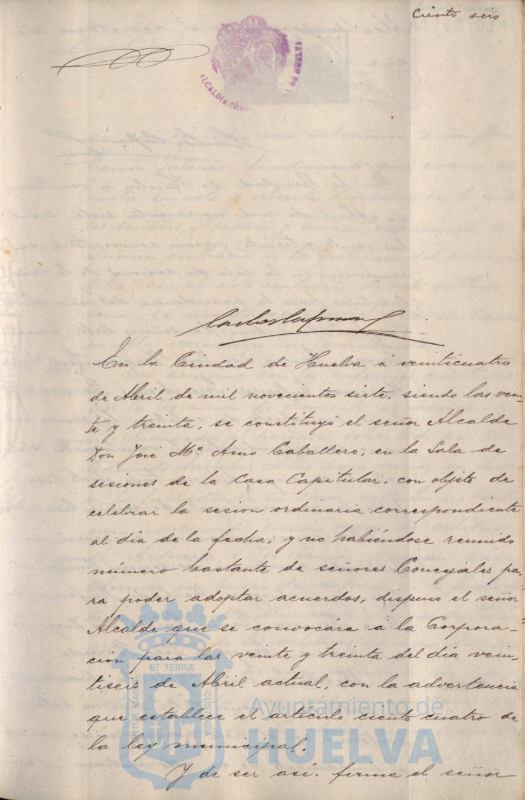 Ciento seis
ALCALDIA CONS DE HUELVA
En la Ciudad de Huelva á veinticuatro
de Abril de mil novecientos siete, siendo las vein-
te y treinta, se constituyó el señor Alcalde
Don José Mª Amo Caballero, en la Sala de
sesiones de la Casa Capitular, con objeto de
celebrar la sesion ordinaria correspondiente
al día de la fecha; y no habiéndose reunido
número bastante de señores Concejales pa-
ra poder adoptar acuerdos, dispuso el señor
Alcalde que se convocára á la Corpora-
ción para las veinte y treinta del día vein-
tiseis de Abril actual, con la advertencia
que establece el artículo ciento cuatro de
la ley municipal.
Y de ser así, firma el señor
PORTUS MARIS ET TERRÆ CUSTODIA
Ayuntamiento de
HUELVA